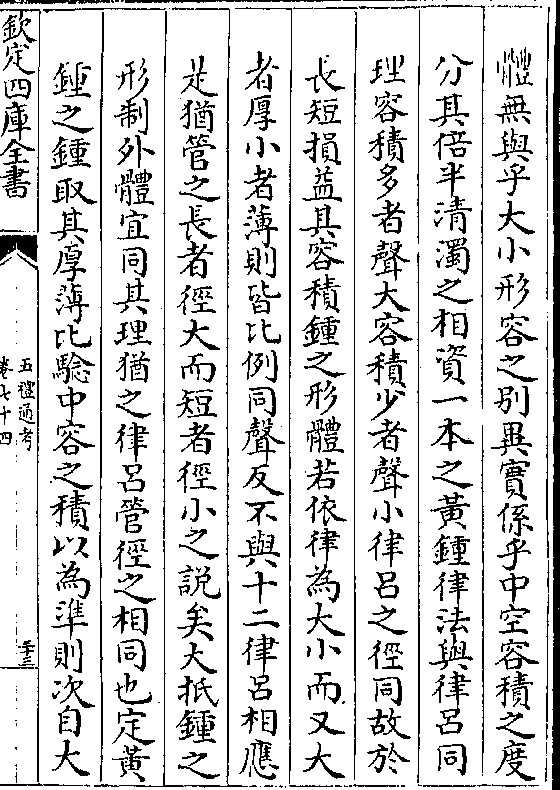 體無與乎大小形容之别異實係乎中空容積之度
分其倍半清濁之相資一本之黃鍾律法與律呂同
理容積多者聲大容積少者聲小律呂之徑同故於
長短損益其容積鍾之形體若依律為大小而又大
者厚小者薄則皆比例同聲反不與十二律呂相應
是猶管之長者徑大而短者徑小之説矣大抵鍾之
形制外體宜同其理猶之律呂管徑之相同也定黃
鍾之鍾取其厚薄比驗中容之積以為準則次自大
欽定四庫全書
五禮通考
卷七十四